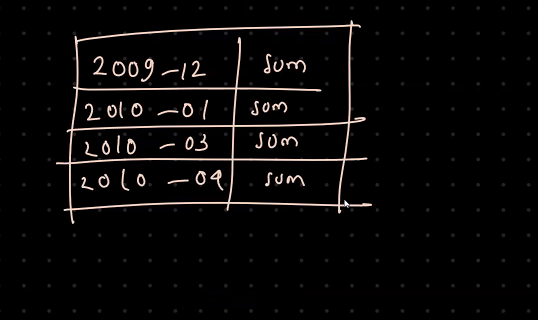 2009-12 sum
2010-01 sum
2010-03 sum
2010-04 sum